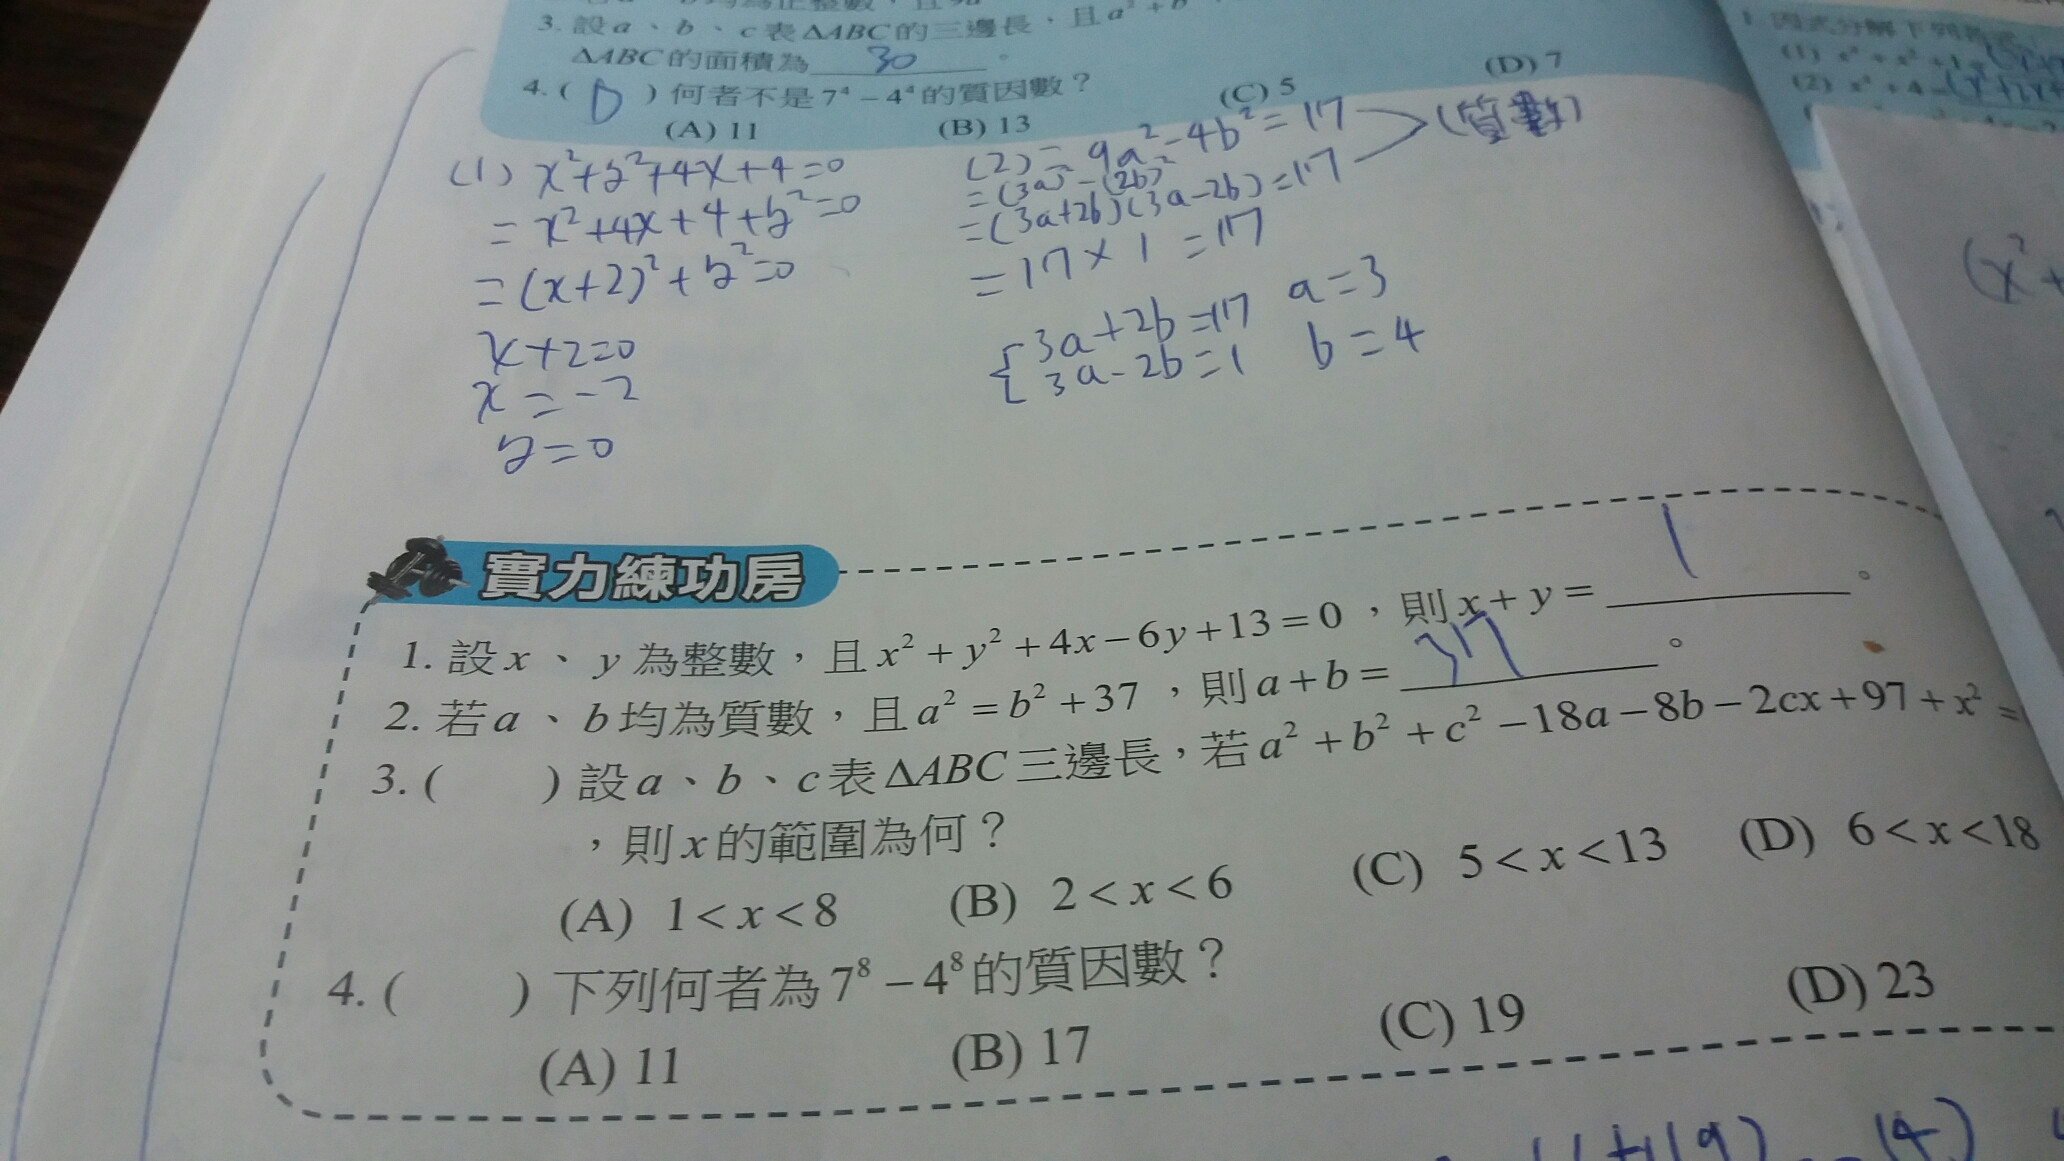 3. 設a、b、c表ΔABC的三邊長，且a²+b
ΔABC的面積為 30 。
4. ( D ) 何者不是7⁴−4⁴的質因數？
(A) 11 (B) 13 (C) 5 (D) 7
(1) x²+y²+4x+4=0
= x²+4x+4+y²=0
= (x+2)²+y²=0
x+2=0
x=-2
y=0
(2) = 9a²-4b²=17
= (3a)²-(2b)²
= (3a+2b)(3a-2b)=17 (質數)
= 17×1=17
{ 3a+2b=17 a=3
3a-2b=1 b=4
實力練功房
1. 設x、y為整數，且x²+y²+4x−6y+13=0，則x+y= 1 。
2. 若a、b均為質數，且a²=b²+37，則a+b= 37 。
3. ( ) 設a、b、c表ΔABC三邊長，若a²+b²+c²−18a−8b−2cx+97+x²=
，則x的範圍為何？
(A) 1<x<8 (B) 2<x<6 (C) 5<x<13 (D) 6<x<18
4. ( ) 下列何者為7⁸−4⁸的質因數？
(A) 11 (B) 17 (C) 19 (D) 23
(x²+